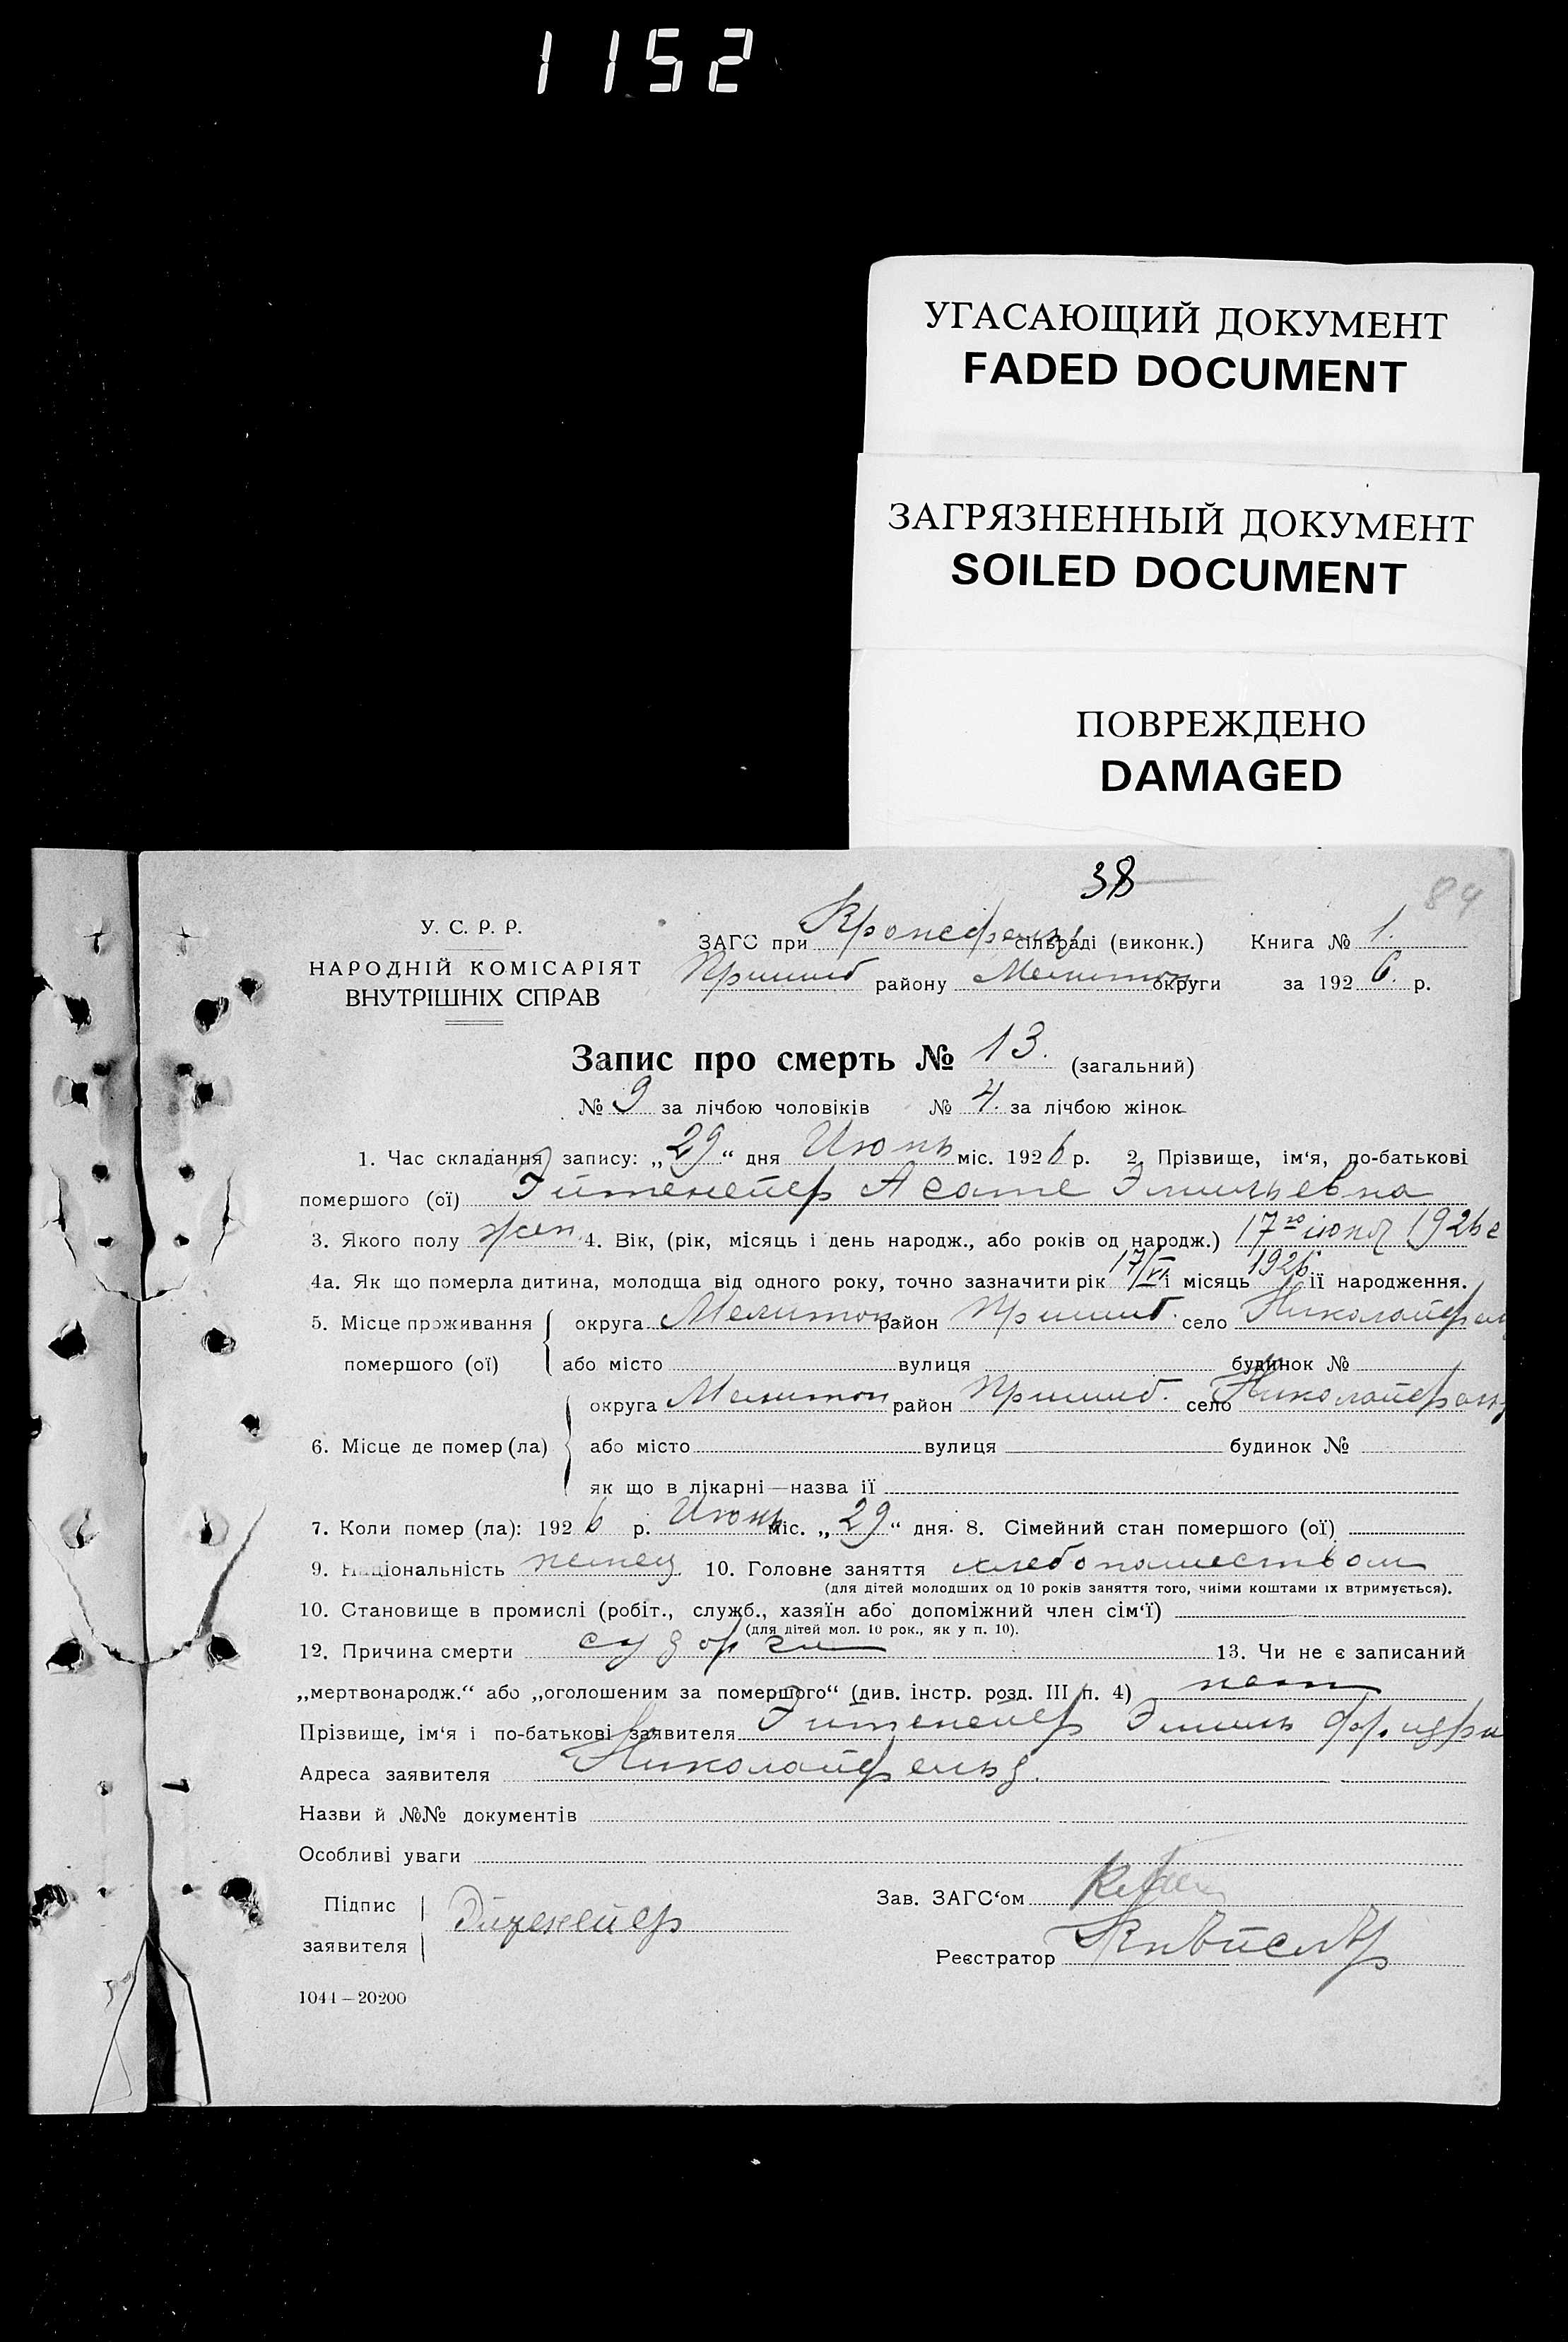 1152
УГАСАЮЩИЙ ДОКУМЕНТ
FADED DOCUMENT
ЗАГРЯЗНЕННЫЙ ДОКУМЕНТ
SOILED DOCUMENT
ПОВРЕЖДЕНО
DAMAGED
38
84
У. С. Р. Р.
НАРОДНІЙ КОМІСАРІЯТ
ВНУТРІШНІХ СПРАВ
ЗАГС при Кронсфельд сільраді (виконк.) Книга № 1.
Пришиб району Мелитоп округи за 192 6. р.
Запис про смерть № 13. (загальний)
№ 9 за лічбою чоловіків № 4. за лічбою жінок
1. Час складання запису: „ 29 “ дня Июнь міс. 192 6 р. 2. Прізвище, ім‘я, по-батькові
помершого (ої) Эмильевна
3. Якого полу жен. 4. Вік, (рік, місяць і день народж., або років од народж.) 17го июня 1926 г
4а. Як що померла дитина, молодща від одного року, точно зазначити рік 17/VI і місяць 1926 її народження.
5. Місце проживання округа Мелитоп район Пришиб. село Николайфельд
помершого (ої) або місто вулиця будинок №
округа Мелитоп район Пришиб. село Николайфельд
6. Місце де помер (ла) або місто вулиця будинок №
як що в лікарні—назва її
7. Коли помер (ла): 192 6 р. Июнь міс. „ 29 “ дня. 8. Сімейний стан помершого (ої)
9. Національність немец 10. Головне заняття хлебопашеством
(для дітей молодших од 10 років заняття того, чиїми коштами їх втримується).
10. Становище в промислі (робіт., служб., хазяїн або допоміжний член сім‘ї)
(для дітей мол. 10 рок., як у п. 10).
12. Причина смерти судорги 13. Чи не є записаний
„мертвонародж.“ або „оголошеним за помершого“ (див. інстр. розд. III п. 4) нет
Прізвище, ім‘я і по-батькові заявителя Эмиль
Адреса заявителя Николайфельд.
Назви й №№ документів
Особливі уваги
Підпис
заявителя
Зав. ЗАГС‘ом
Реєстратор
1044—20200